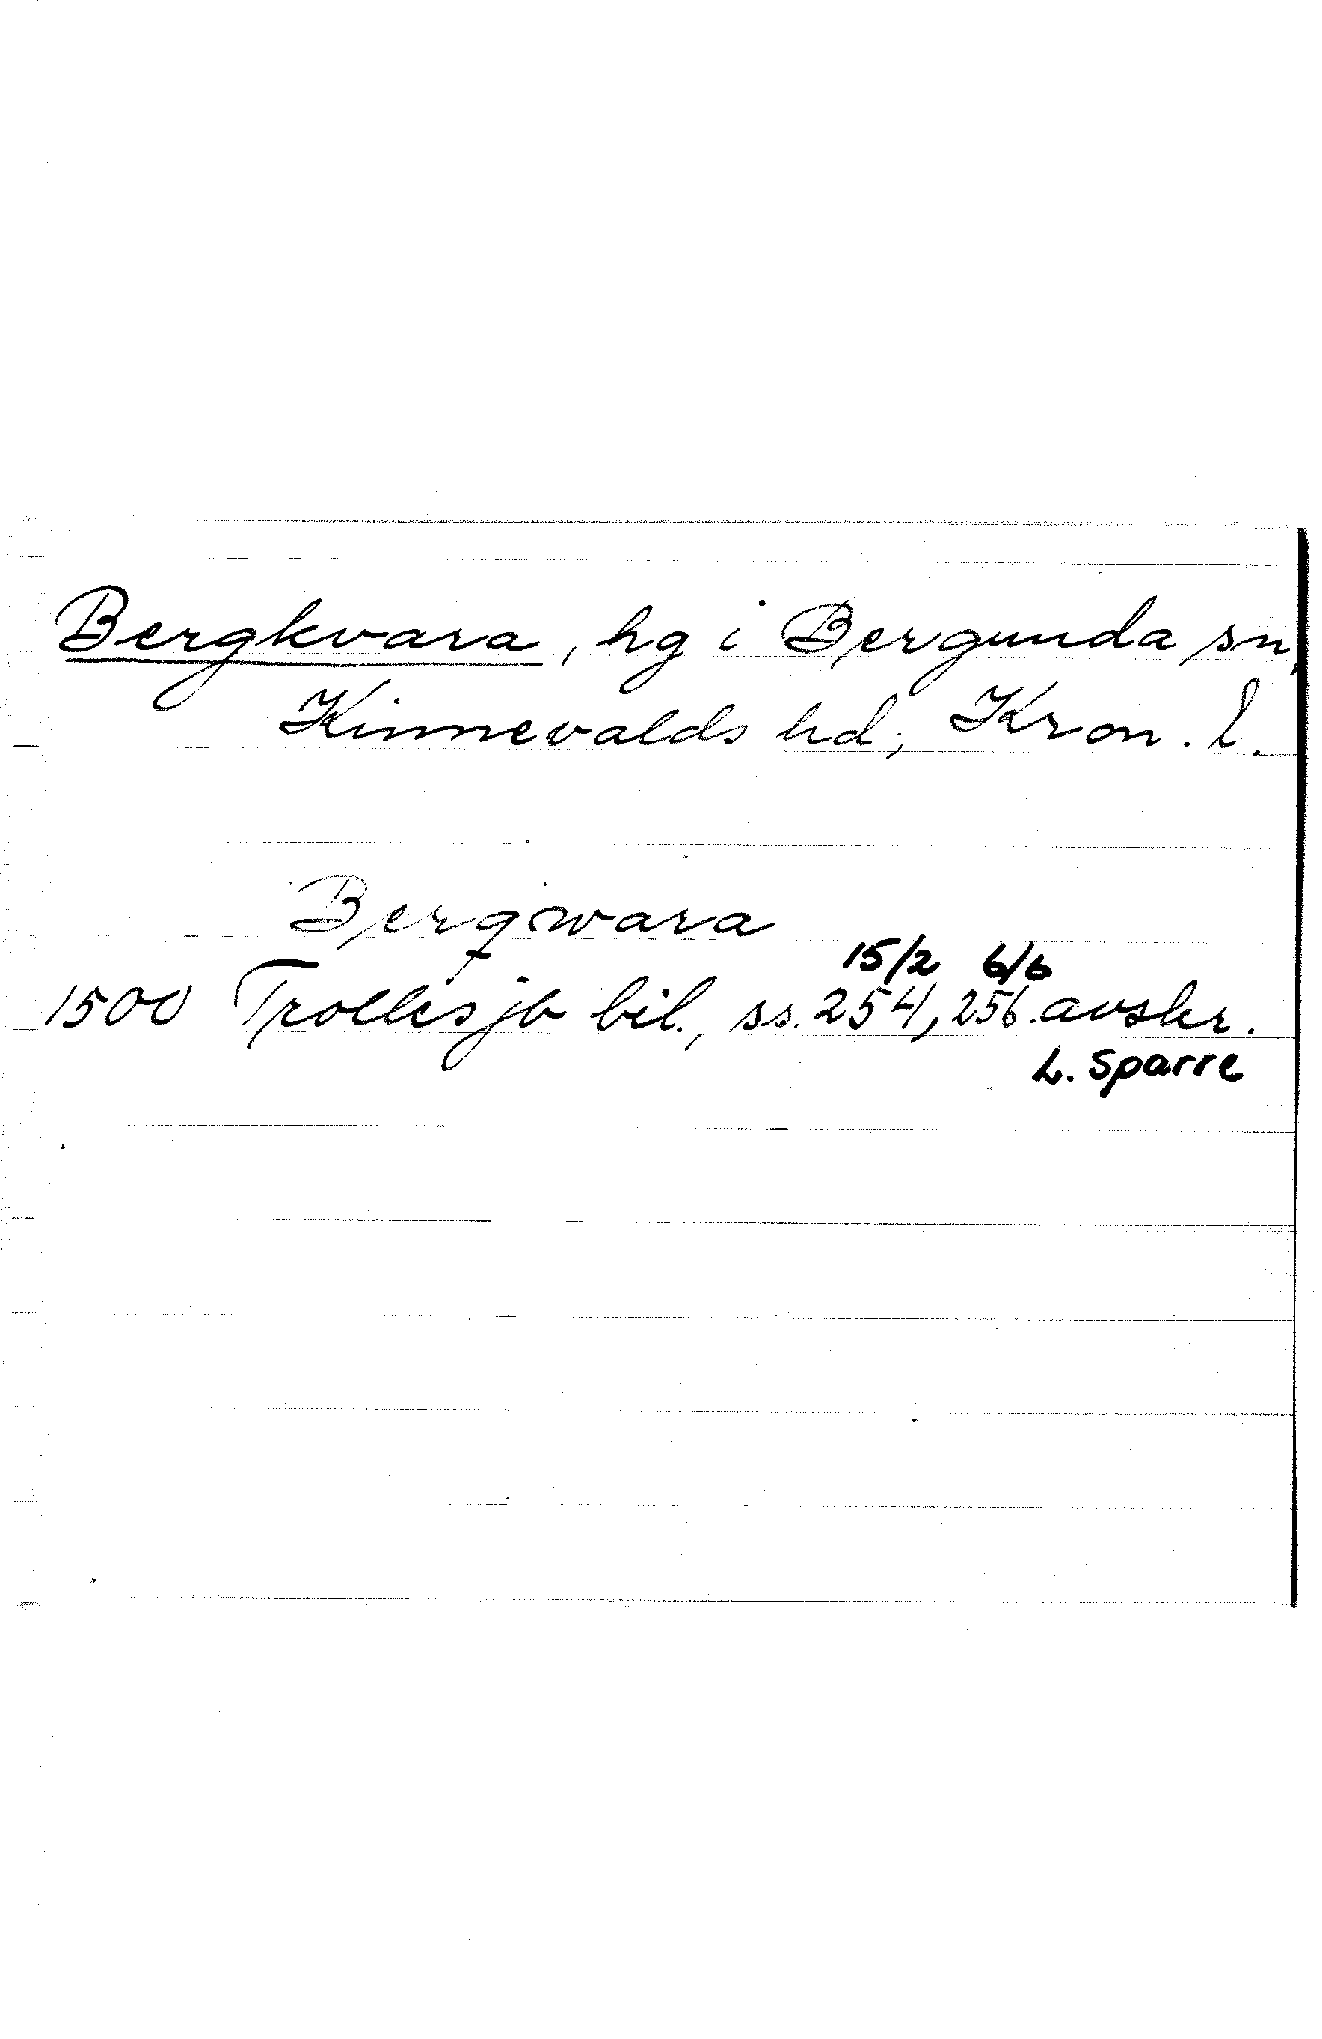 Bergkvara, hg i Bergunda sn,
Kinnevalds hd, Kron. l.
Bergqwara
15/2 6/6
1500 Trolles jb bil., ss. 254, 256. avskr.
L. Sparre